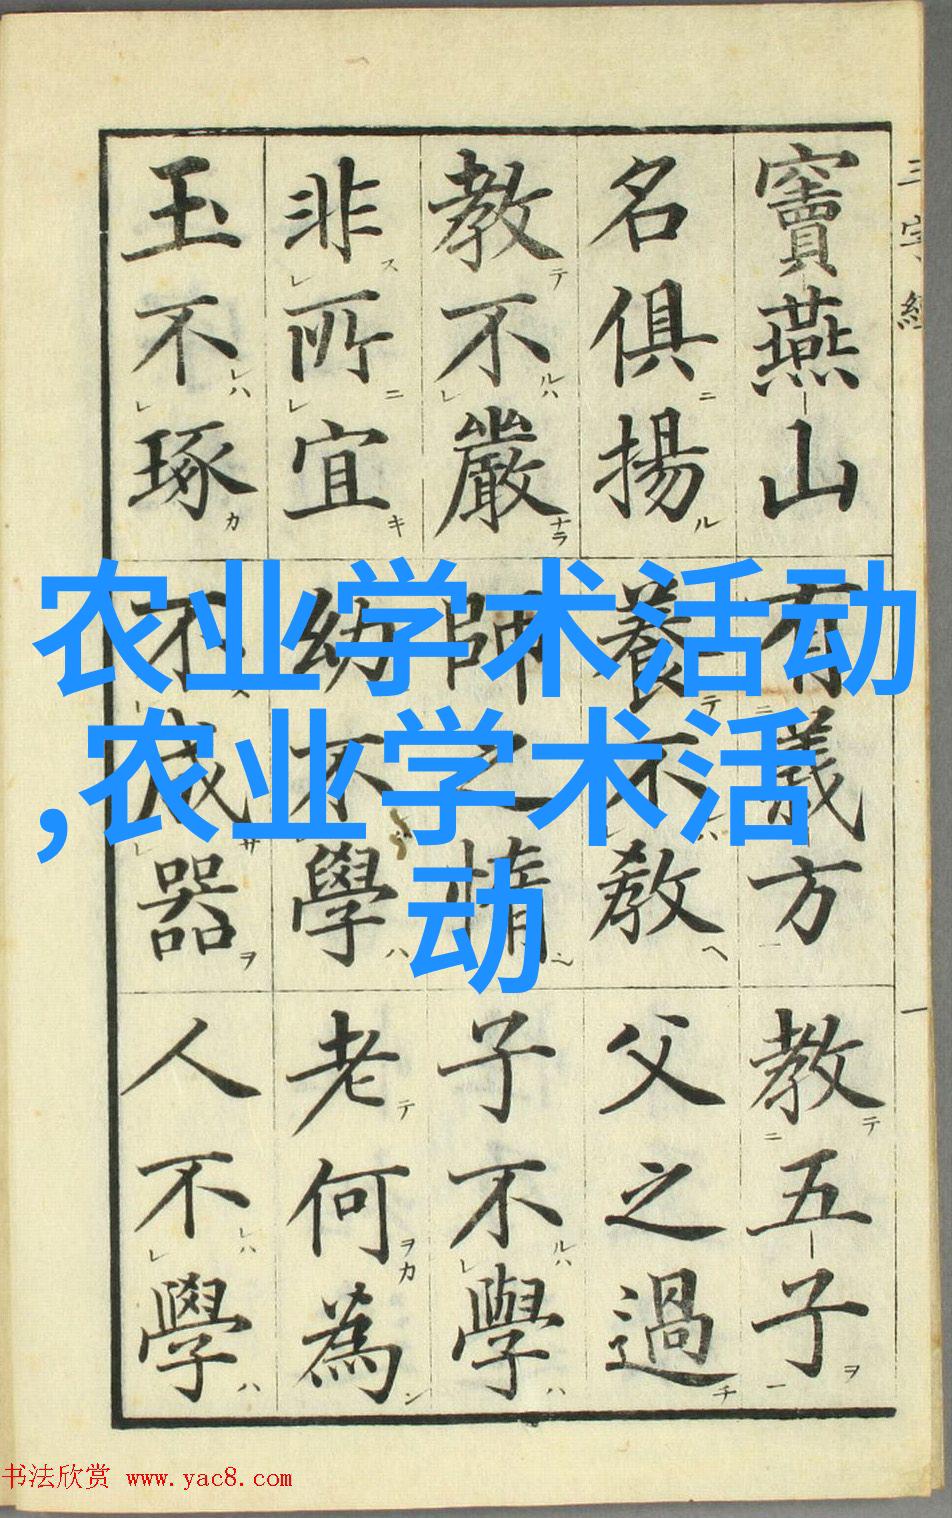 三字經
一
竇燕山有義方教五子
名俱揚養不教父之過
教不嚴師之惰子不學
非所宜幼不學老何為
玉不琢不成器人不學
农业学术活动
,农业学术活
动
书法欣赏 www.yac8.com